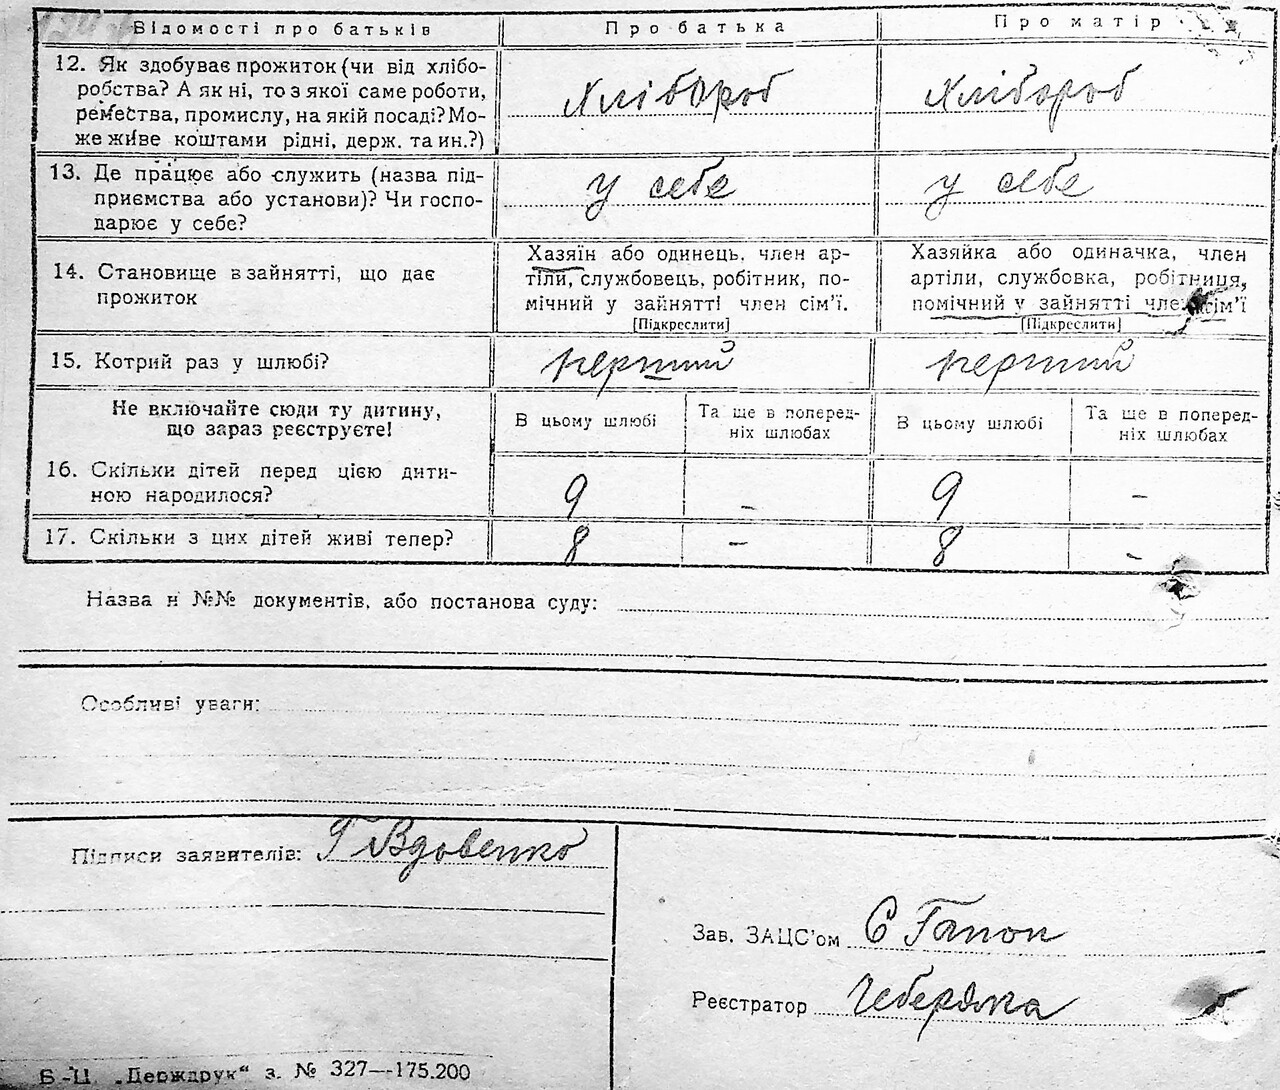 Відомості про батьків Про батька Про матір
12. Як здобуває прожиток (чи від хлібо-
робства? А як ні, то з якої саме роботи,
ремества, промислу, на якій посаді? Мо-
же живе коштами рідні, держ. та ин.?)
Хлібороб Хлібороб
13. Де працює або служить (назва під-
приємства або установи)? Чи госпо-
дарює у себе?
у себе у себе
14. Становище в зайнятті, що дає
прожиток
Хазяїн або одинець, член ар-
тіли, службовець, робітник, по-
мічний у зайнятті член сім'ї.
[Підкреслити]
Хазяйка або одиначка, член
артіли, службовка, робітниця,
помічний у зайнятті член сім'ї
[Підкреслити]
15. Котрий раз у шлюбі? перший перший
Не включайте сюди ту дитину,
що зараз реєструєте!
В цьому шлюбі Та ще в поперед-
ніх шлюбах
В цьому шлюбі Та ще в поперед-
ніх шлюбах
16. Скільки дітей перед цією дити-
ною народилося?
9 - 9 -
17. Скільки з цих дітей живі тепер? 8 - 8 -
Назва н №№ документів, або постанова суду:
Особливі уваги:
Підписи заявителів: Г Вдовенко
Зав. ЗАЦС'ом Є Гапон
Реєстратор Чеберяка
Б-Ц. „Держдрук“ з. № 327—175.200